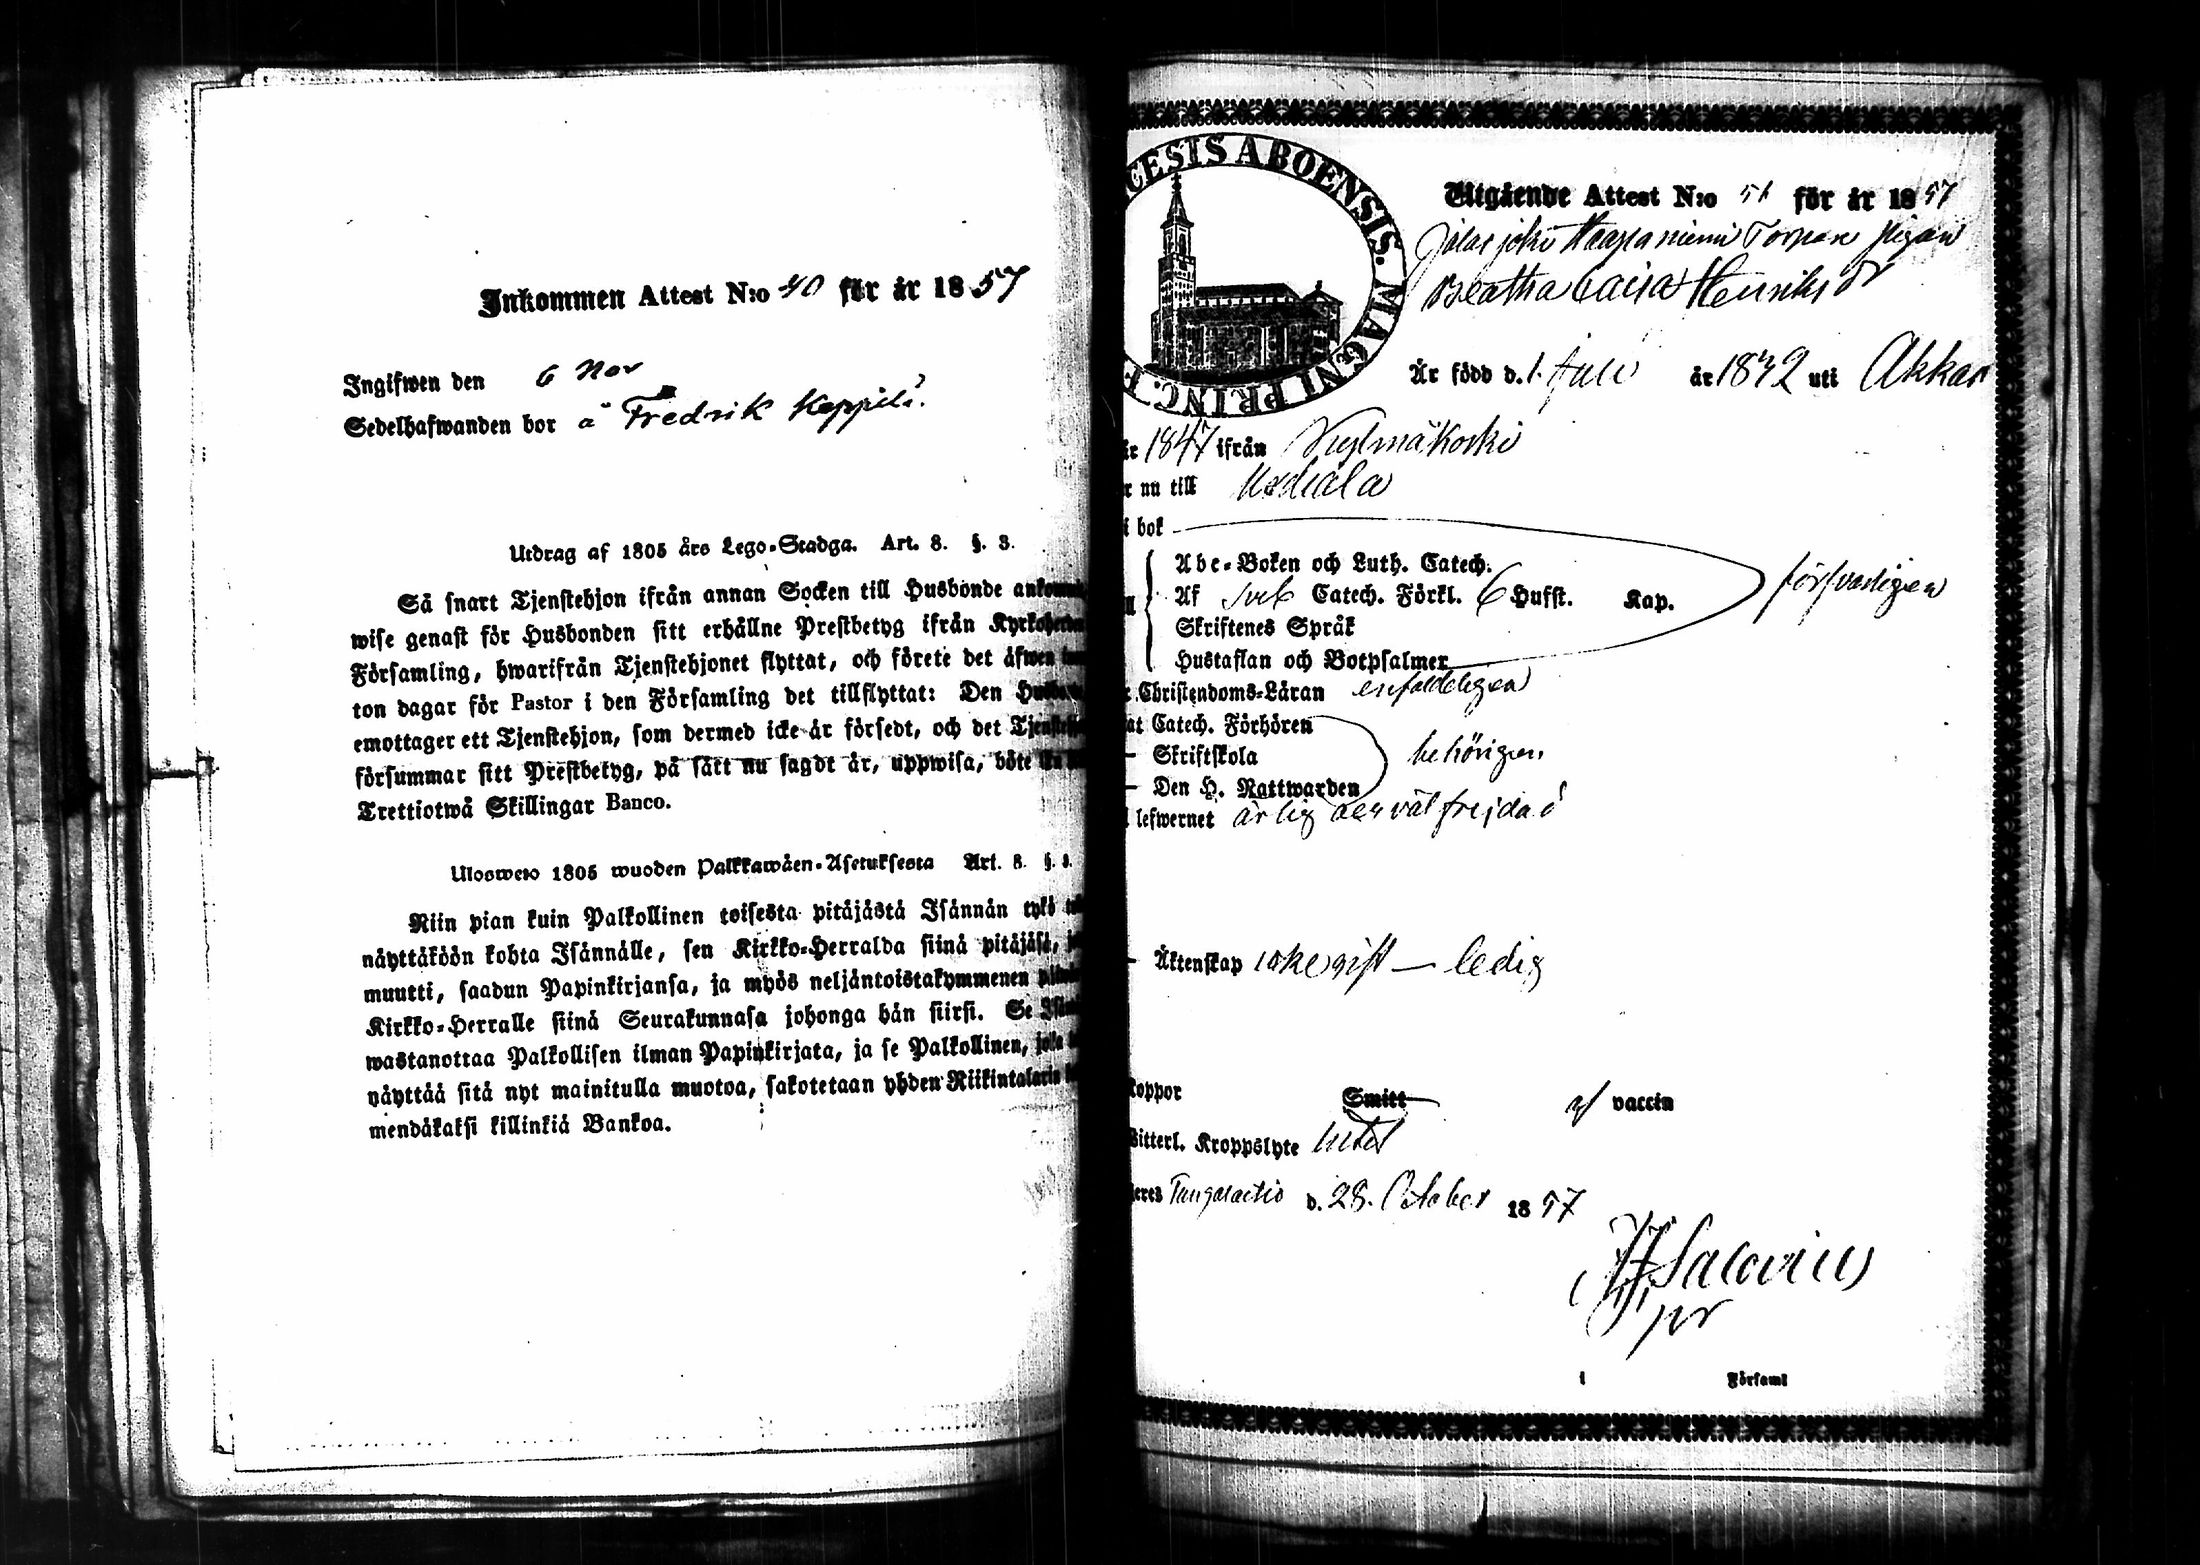 Inkommen Attest N:o 40 för år 1857
Ingifwen den 6 Nov
Sedelhafwanden bor å Fredrik Keppilä.
Utdrag af 1805 års Lego-Stadga. Art. 8. §. 3.
Så snart Tjenstehjon ifrån annan Socken till Husbonde
wise genast för Husbonden sitt erhållne Prestbetyg ifrån
Församling, hwarifrån Tjenstehjonet flyttat, och förete det äfwen
ton dagar för Pastor i den Församling det tillflyttat: Den
emottager ett Tjenstehjon, som dermed icke är försedt, och det
försummar sitt Prestbetyg, på sätt nu sagdt är, uppwisa, böte
Trettiotwå Skillingar Banco.
Uloswето 1805 wuoden Palkkawäen-Asetuksesta Art. 8. §. 3.
Niin pian kuin Palkollinen toisesta pitäjästä Isännän tykö
näyttäköön kohta Isännälle, sen Kirkko-Herralda siinä pitäjäsä,
muutti, saadun Papinkirjansa, ja myös neljäntoistakymmenen
Kirkko-Herralle siinä Seurakunnasa johonga hän siirsi. Se
wastanottaa Palkollisen ilman Papinkirjata, ja se Palkollinen, joka
näyttää sitä nyt mainitulla muotoa, sakotetaan yhden Riikintalarin
mendäkaksi killinkiä Bankoa.
CESIS ABOENSIS. MAGNI PRINC. F
Utgående Attest N:o 51 för år 1857
Jalasjoki Haapaniemi Torpare pigan
Beatha Caisa Henriksdr
Är född d. 1. Juli år 1842 uti Akkas
år 1847 ifrån
r nu till
i bok
Abc-Boken och Luth. Catech.
Af Sveb Catech. Förkl. 6 Hufst. Kap. försvarligen
Skriftenes Språk
Hustaflan och Botpsalmer
r Christendoms-Läran enfaldeligen
at Catech. Förhören
– Skriftskola behörigen
– Den H. Nattwarden
lefwernet ärlig och välfrejdad
– Äktenskap icke gift — ledig
Koppor Smitt af vaccin
Witterl. Kroppslyte intet
d. 28. October 1857
pr
i Församl